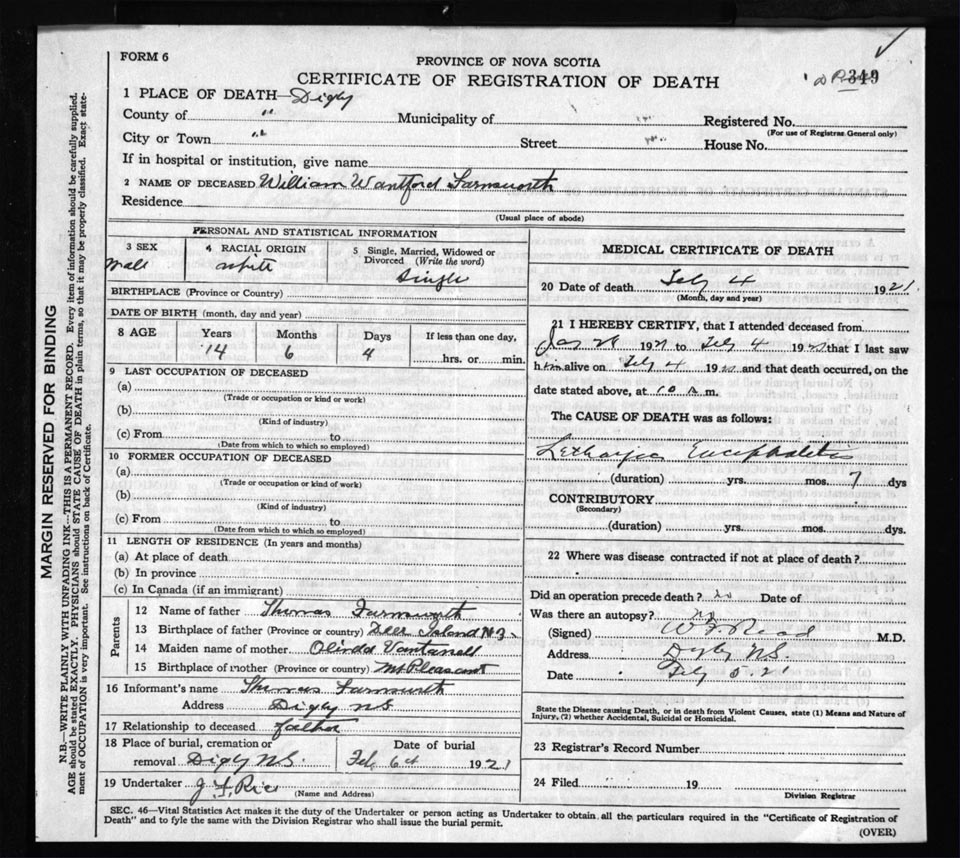 FORM 6
PROVINCE OF NOVA SCOTIA
CERTIFICATE OF REGISTRATION OF DEATH
349
1 PLACE OF DEATH—Digby
County of " Municipality of " Registered No.
(For use of Registrar General only)
City or Town " Street " House No.
If in hospital or institution, give name
2 NAME OF DECEASED William Wantford Farnsworth
Residence
(Usual place of abode)
PERSONAL AND STATISTICAL INFORMATION
3 SEX
male
4 RACIAL ORIGIN
white
5 Single, Married, Widowed or Divorced (Write the word)
Single
BIRTHPLACE (Province or Country)
DATE OF BIRTH (month, day and year)
8 AGE Years Months Days If less than one day,
14 6 4 hrs. or min.
9 LAST OCCUPATION OF DECEASED
(a)
(Trade or occupation or kind or work)
(b)
(Kind of industry)
(c) From to
(Date from which to which so employed)
10 FORMER OCCUPATION OF DECEASED
(a)
(Trade or occupation or kind of work)
(b)
(Kind of industry)
(c) From to
(Date from which to which so employed)
11 LENGTH OF RESIDENCE (In years and months)
(a) At place of death
(b) In province
(c) In Canada (if an immigrant)
Parents
12 Name of father Thomas Farnsworth
13 Birthplace of father (Province or country) Deer Island N.B.
14 Maiden name of mother Olinda Vantassell
15 Birthplace of mother (Province or country) Mt Pleasant
16 Informant's name Thomas Farnsworth
Address Digby N.S.
17 Relationship to deceased father
18 Place of burial, cremation or removal Digby N.S.
Date of burial Feb 6th 1921
19 Undertaker J. F. Rice
(Name and Address)
MEDICAL CERTIFICATE OF DEATH
20 Date of death Feby 4 1921
(Month, day and year)
21 I HEREBY CERTIFY, that I attended deceased from
Jany 28 1921 to Feby 4 1921 that I last saw
him alive on Feby 4 1921 and that death occurred, on the
date stated above, at 10 a m.
The CAUSE OF DEATH was as follows:
Lethargic Encephalitis
(duration) yrs. mos. 7 dys
CONTRIBUTORY
(Secondary)
(duration) yrs. mos. dys.
22 Where was disease contracted if not at place of death?
Did an operation precede death? no Date of
Was there an autopsy? no
(Signed) W. F. Read M.D.
Address Digby N.S.
Date Feby 5. 21
State the Disease causing Death, or in death from Violent Causes, state (1) Means and Nature of
Injury, (2) whether Accidental, Suicidal or Homicidal.
23 Registrar's Record Number
24 Filed 19
Division Registrar
SEC. 46—Vital Statistics Act makes it the duty of the Undertaker or person acting as Undertaker to obtain all the particulars required in the "Certificate of Registration of
Death" and to fyle the same with the Division Registrar who shall issue the burial permit.
(OVER)
MARGIN RESERVED FOR BINDING
N.B.—WRITE PLAINLY WITH UNFADING INK—THIS IS A PERMANENT RECORD. Every item of information should be carefully supplied.
AGE should be stated EXACTLY. PHYSICIANS should STATE CAUSE OF DEATH in plain terms, so that it may be properly classified. Exact state-
ment of OCCUPATION is very important. See instructions on back of Certificate.